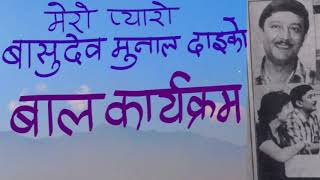 मेरो प्यारो
बासुदेव मुनाल दाइको
बाल कार्यक्रम